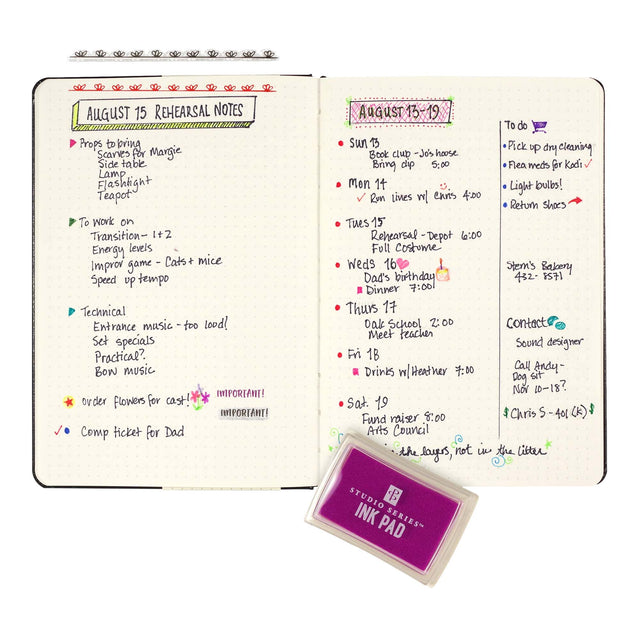 AUGUST 15 REHEARSAL NOTES
Props to bring
Scarves for Margie
Side table
Lamp
Flashlight
Teapot
To Work on
Transition - 1+2
Energy levels
Improv game - Cats + mice
Speed up tempo
Technical
Entrance music - too loud!
Set specials
Practical?
Bow music
order flowers for cast!
IMPORTANT!
IMPORTANT!
Comp ticket for Dad
AUGUST 13-19
Sun 13
Book club - Jo's house
Bring dip 5:00
Mon 14
Run lines w/ Chris 4:00
Tues 15
Rehearsal - Depot 6:00
Full Costume
Weds 16
Dad's birthday
Dinner 7:00!
Thurs 17
Oak School 2:00
Meet teacher
Fri 18
Drinks w/ Heather 7:00
Sat. 19
Fund raiser 8:00
Arts Council
To do
Pick up dry cleaning
Flea meds for Kodi
Light bulbs!
Return shoes
Stern's Bakery
432-8571
Contact
Sound designer
Call Andy-
Dog sit
Nov 10-18?
$ Chris S - 401 (K) $
the layers, not in the litter
STUDIO SERIES™
INK PAD